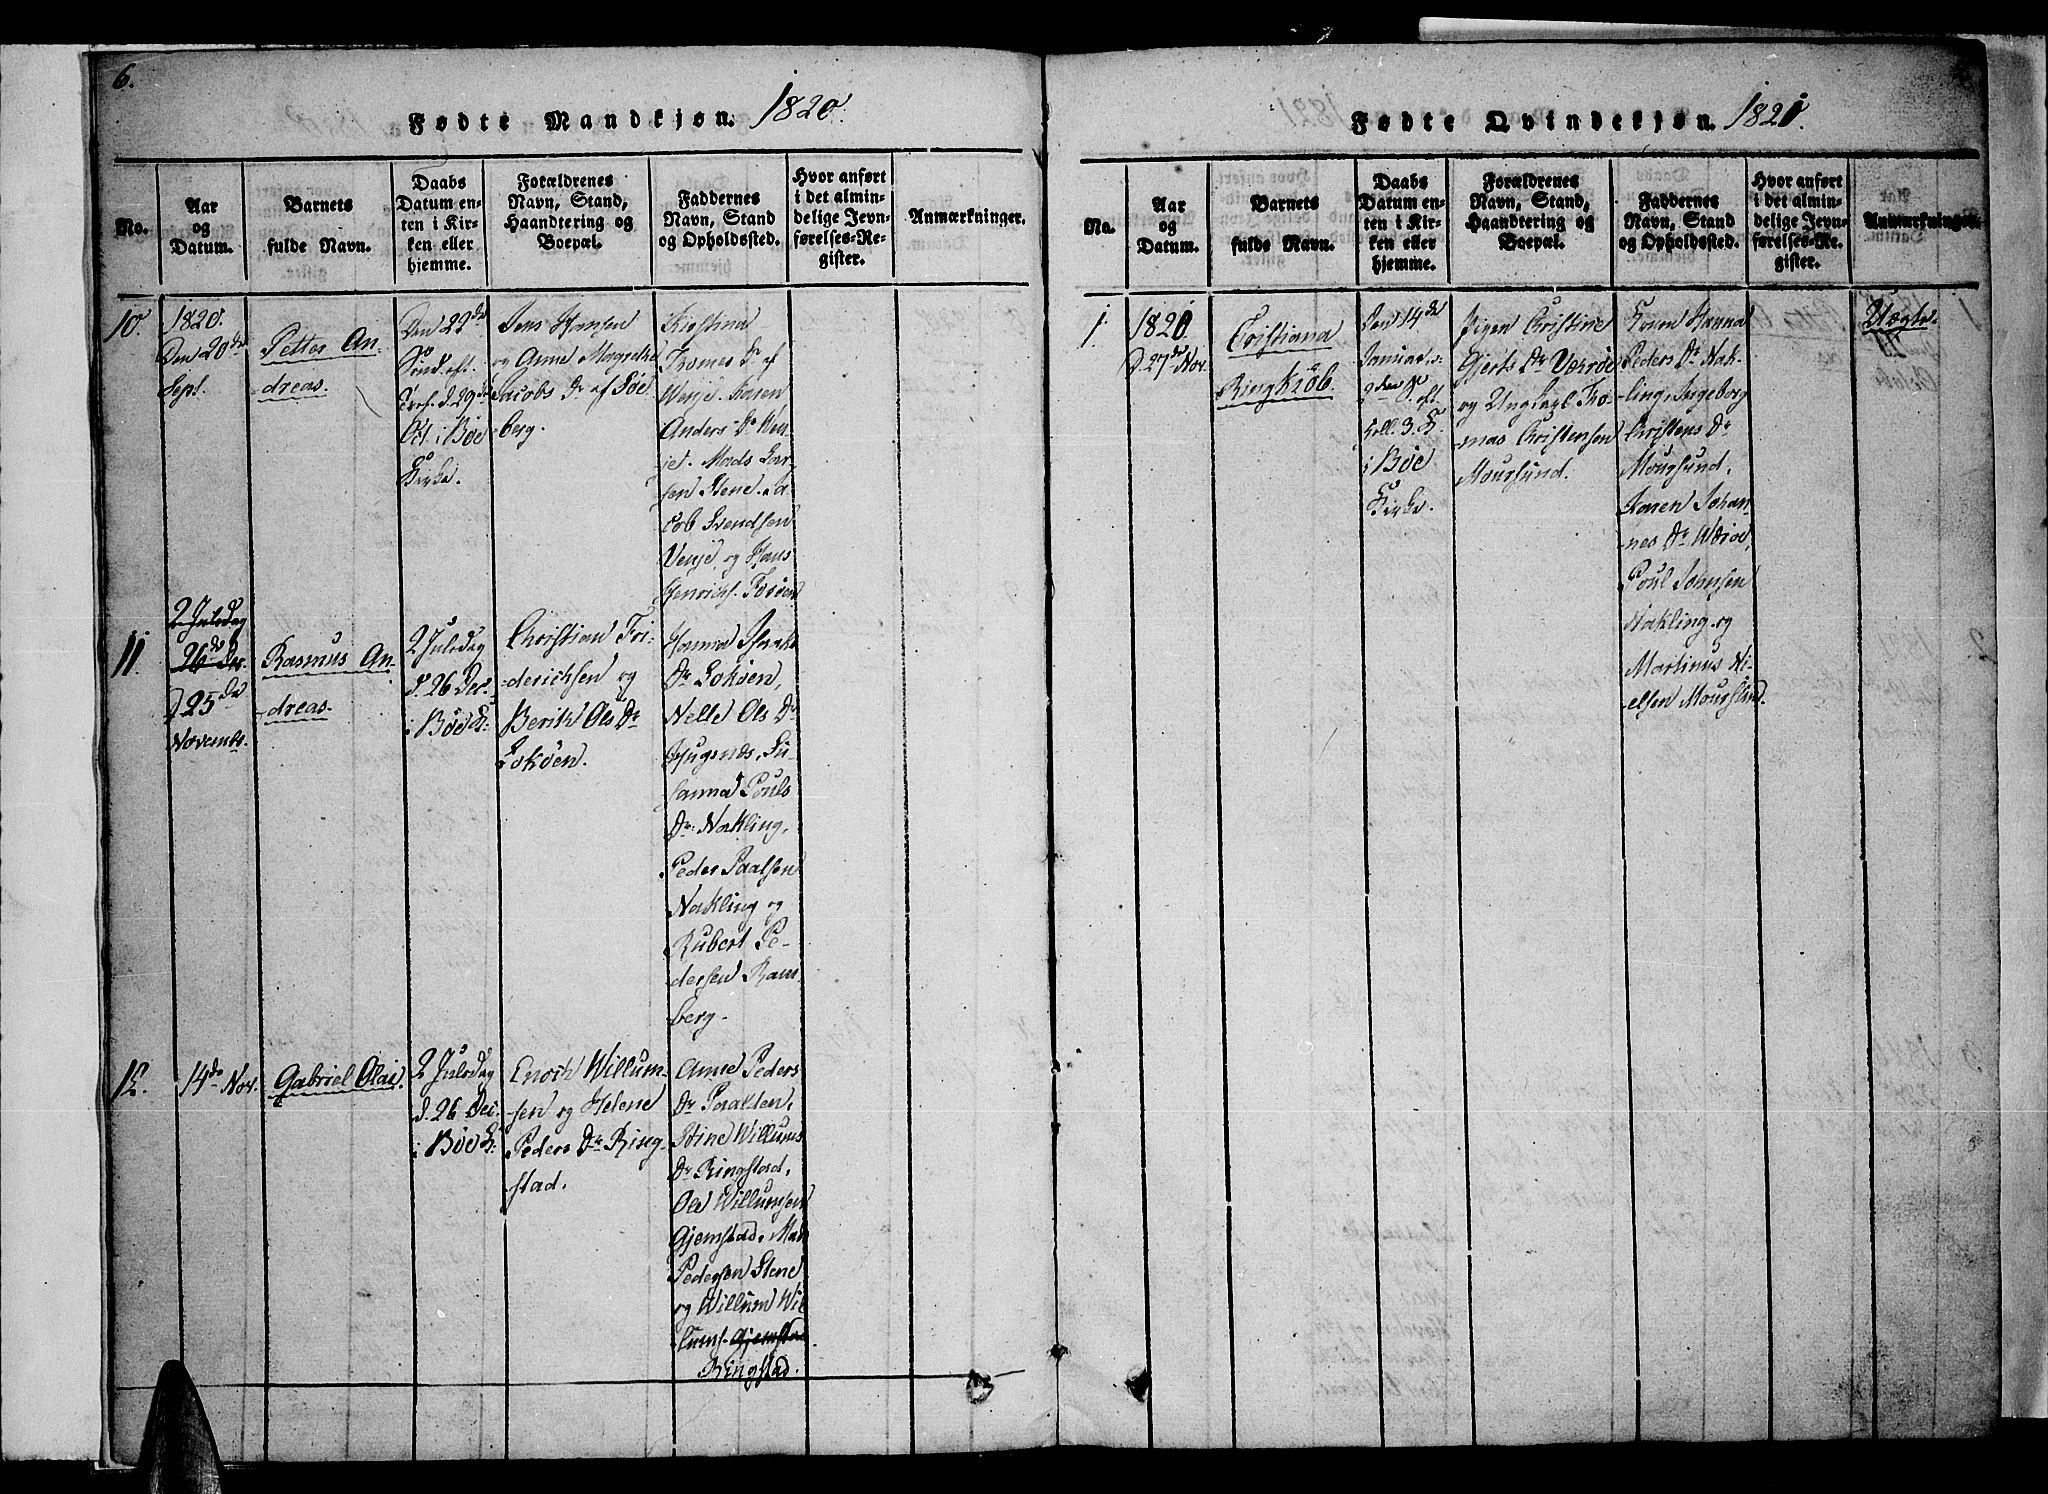 6.
Fødte Mandkjøn. 1820.
No.
Aar
og
Datum.
Barnets
fulde Navn.
Daabs
Datum en-
ten i Kir-
ken eller
hjemme.
Forældrenes
Navn, Stand,
Haandtering og
Boepæl.
Faddernes
Navn, Stand
og Opholdssted.
Hvor anført
i det almin-
delige Jevn-
førelses-Re-
gister.
Anmærkninger.
10.
1820.
Den 20de
Sept.
Petter An-
dreas.
Den 22de
Sønd. eft.
Tref. d. 29de
Oct. i Bøe
Kirke.
Jens Hansen
og Anne Margrethe
Jacobs Dr af Søe
berg.
Kistina
Tromes Dr af
Venje. Karen
Anders Dr Ven-
je. Mads Lar-
sen Stene. Ja
cob Svendsen
Venje og Hans
Henrichs. Forøen
11.
2 Juledag
26de Dec.
d 25de
November.
Rasmus An-
dreas.
2 Juledag
d. 26 Dec.
i Bøe K:
Christian Fri-
derichsen og
Berith Ols Dr
Lokøen.
Hanna Isaaks
Dr Lokøen,
Nelle Ols Dr
Hugsnæs, Su-
sanna Pouls
Dr Nokling,
Peder Paalsen
Nokling og
Rubert Pe-
dersen Rams-
berg.
12.
14de Nov.
Gabriel Olai.
2 Juledag
d. 26 Dec.
i Bøe K:
Enoch Willum-
sen og Helene
Peders Dr Ring-
stad.
Anne Peders
Dr Paalsen,
Stine Willums
Dr Ringstad,
Ole Willumsen
Gjemstad, Mads
Pedersen Stene
og Willum Wil
lums. Gjemstad
Ringstad.
Fødte Qvindekjøn. 1821.
No.
Aar
og
Datum.
Barnets
fulde Navn.
Daabs
Datum en-
ten i Kir-
ken eller
hjemme.
Forældrenes
Navn, Stand,
Haandtering og
Boepæl.
Faddernes
Navn, Stand
og Opholdssted.
Hvor anført
i det almin-
delige Jevn-
førelses-Re-
gister.
Anmærkninger.
1.
1820
d. 27de Nov.
Cristiana
Ringkiøb.
Den 14de
Januar
eft.
Hell. 3 K.
i Bøe
Kirke.
Pigen Christine
Gjerts Dr Værøe
og Ungkarl Tho
mas Christensen
Mourslund.
Konen Hanna
Peders Dr Nak-
ling, Ingeborg
Christens Dr
Mourslund,
Konen Johan
nes Dr Wærøe,
Poul Johnsen
Nakling og
Martinus Ni-
elsen Mourslund.
Uægte.